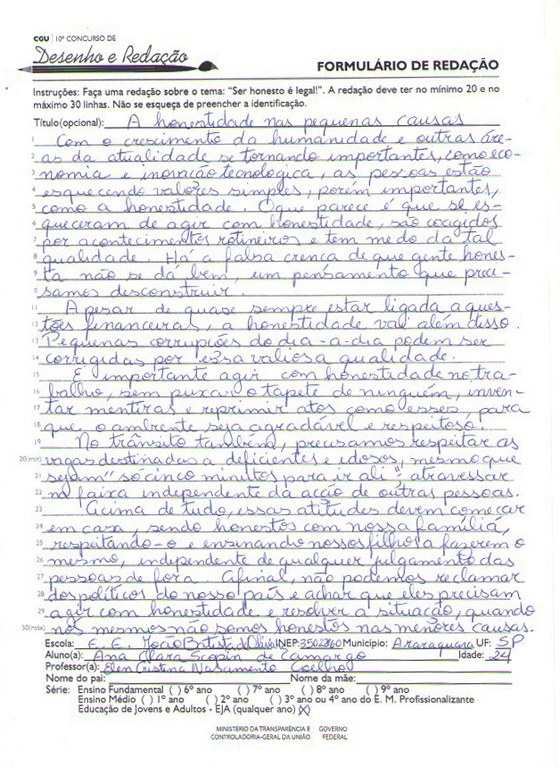 CGU | 10º CONCURSO DE
Desenho e Redação
FORMULÁRIO DE REDAÇÃO
Instruções: Faça uma redação sobre o tema: "Ser honesto é legal!". A redação deve ter no mínimo 20 e no
máximo 30 linhas. Não se esqueça de preencher a identificação.
Título(opcional): A honestidade nas pequenas causas
1 Com o crescimento da humanidade e outras áre-
2 as da atualidade se tornando importantes, como eco-
3 nomia e inovação tecnológica, as pessoas estão
4 esquecendo valores simples, porém importantes,
5 como a honestidade. O que parece é que se es-
6 queceram de agir com honestidade, são coagidos
7 por acontecimentos rotineiros e tem medo da tal
8 qualidade. Há a falsa crença de que gente hones-
9 ta não se dá bem, um pensamento que preci-
10 samos desconstruir.
11 Apesar de quase sempre estar ligada a ques-
12 tões financeiras, a honestidade vai além disso.
13 Pequenas corrupções do dia-a-dia podem ser
14 corrigidas por essa valiosa qualidade.
15 É importante agir com honestidade no tra-
16 balho, sem puxar o tapete de ninguém, inven-
17 tar mentiras e reprimir atos como esses, para
18 que o ambiente seja agradável e respeitoso.
19 No trânsito também, precisamos respeitar as
20(mín) vagas destinadas a deficientes e idosos, mesmo que
21 sejam "só cinco minutos para ir ali", atravessar
22 na faixa independente da acção de outras pessoas.
23 Acima de tudo, essas atitudes devem começar
24 em casa, sendo honestos com nossa família,
25 respeitando-o e ensinando nossos filhos a fazerem o
26 mesmo, independente de qualquer julgamento das
27 pessoas de fora. Afinal, não podemos reclamar
28 dos políticos do nosso país e achar que eles precisam
29 agir com honestidade e resolver a situação, quando
30(máx) nós mesmos não somos honestos nas menores causas.
Escola: E. E. João Batista de Oliveira INEP: 35022860 Município: Araraquara UF: SP
Aluno(a): Ana Clara Scopin de Camargo Idade: 24
Professor(a): Elen Cristina Nascimento Coelho
Nome do pai: Nome da mãe:
Série: Ensino Fundamental ( ) 6º ano ( ) 7º ano ( ) 8º ano ( ) 9º ano
Ensino Médio ( ) 1º ano ( ) 2º ano ( ) 3º ano ou 4º ano do E. M. Profissionalizante
Educação de Jovens e Adultos - EJA (qualquer ano) (X)
MINISTÉRIO DA TRANSPARÊNCIA E GOVERNO
CONTROLADORIA-GERAL DA UNIÃO FEDERAL